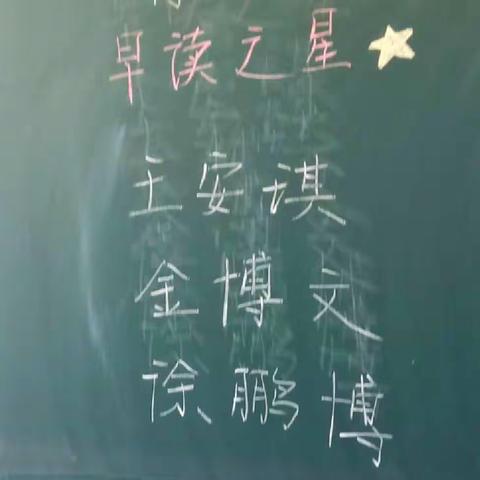 早读之星
王安琪
金博文
徐鹏博